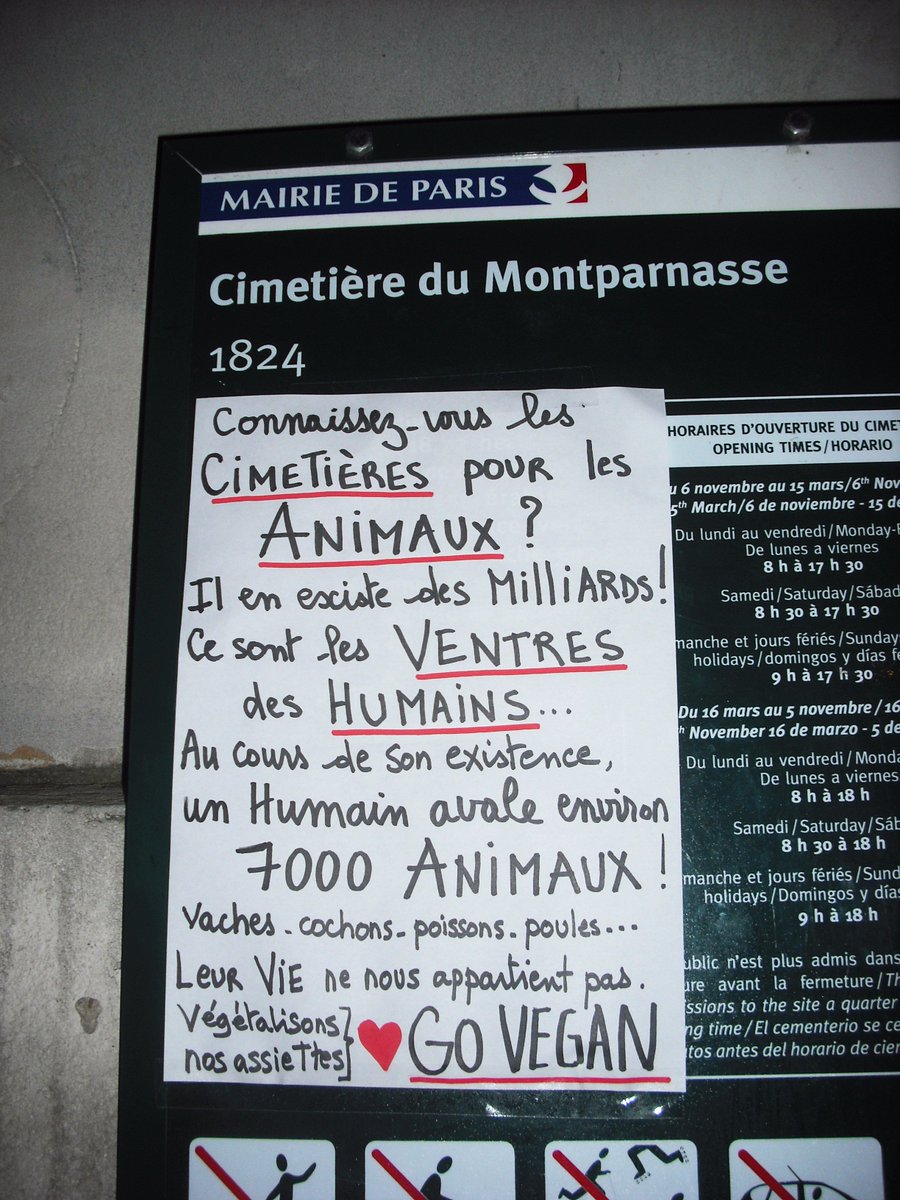 MAIRIE DE PARIS
Cimetière du Montparnasse
1824
Connaissez-vous les
CIMETIÈRES POUR les
ANIMAUX ?
Il en exciste des MilliARDS !
Ce sont les VENTRES
des HUMAINS...
Au cours de son existence,
un Humain avale environ
7000 ANIMAUX !
Vaches - cochons - poissons - poules...
Leur VIE ne nous appartient pas.
Végétalisons
nos assiettes
GO VEGAN
HORAIRES D'OUVERTURE DU
OPENING TIMES/HORARIO
6 novembre au 15 mars/6th
March/6 de noviembre - 15
Du lundi au vendredi/
De lunes a viernes
8 h à 17 h 30
Samedi/Saturday/
8 h 30 à 17 h 30
et jours fériés/
holidays/domingos y días
9 h à 17 h 30
Du 16 mars au 5 novembre/
November 16 de marzo - 5
Du lundi au vendredi/
De lunes a viernes
8 h à 18 h
Samedi/Saturday/
8 h 30 à 18 h
et jours fériés/
holidays/Domingos y
9 h à 18 h
n'est plus admis dans
avant la fermeture/
to the site a quarter
time/El cementerio se
antes del horario de